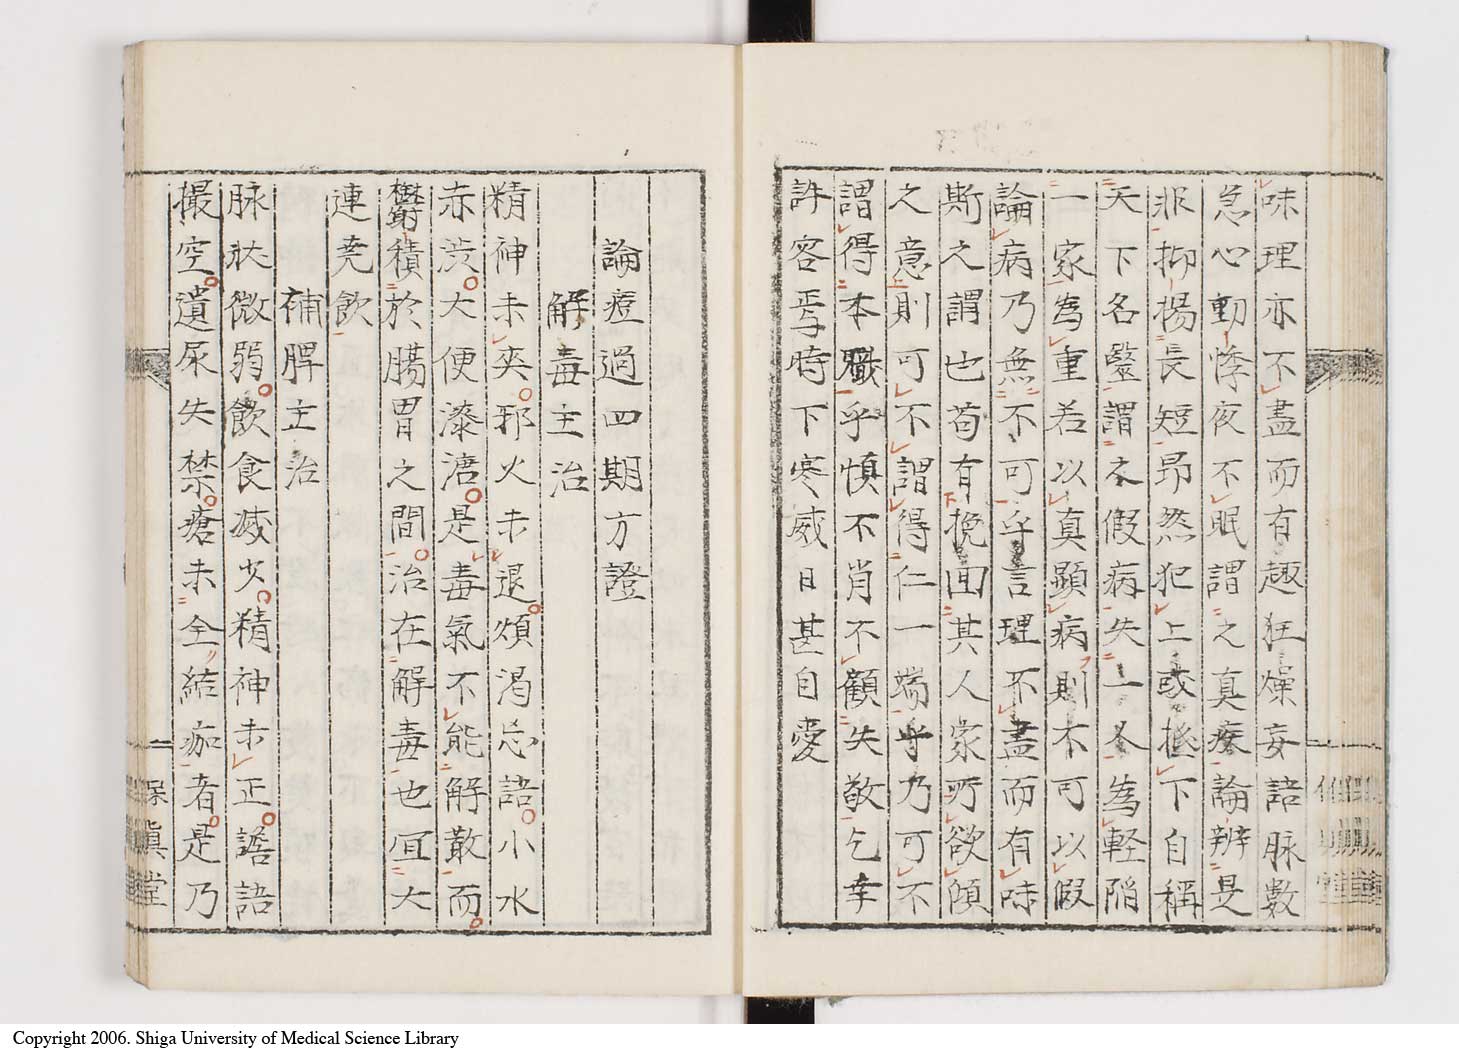 味理亦不盡而有趣狂燥妄語脉數
急心動悸夜不眠謂之真療論辨是
非抑揚長短昂然犯上或極下自稱
天下名醫謂不假病失一不為輕陷
一家為重若以真顯病則不可以假
論病乃無不可乎言理不盡而有味
斯之謂也苟有挽回其人家所欲傾
之意則可不謂得仁一端乎乃可不
謂得本職乎慎不肖不顧失敬乞幸
許容焉時下寒威日甚自愛
論痘過四期方證
解毒主治
精神未爽邪火未退煩渴忘語小水
赤渋大便漆溏是毒氣不能解散而
欝積於腸胃之間治在解毒也宜大
連尭飲
補脾主治
脉状微弱飲食减少精神未正譫語
撮空遺尿失禁瘡未全結痂者是乃
保眞堂